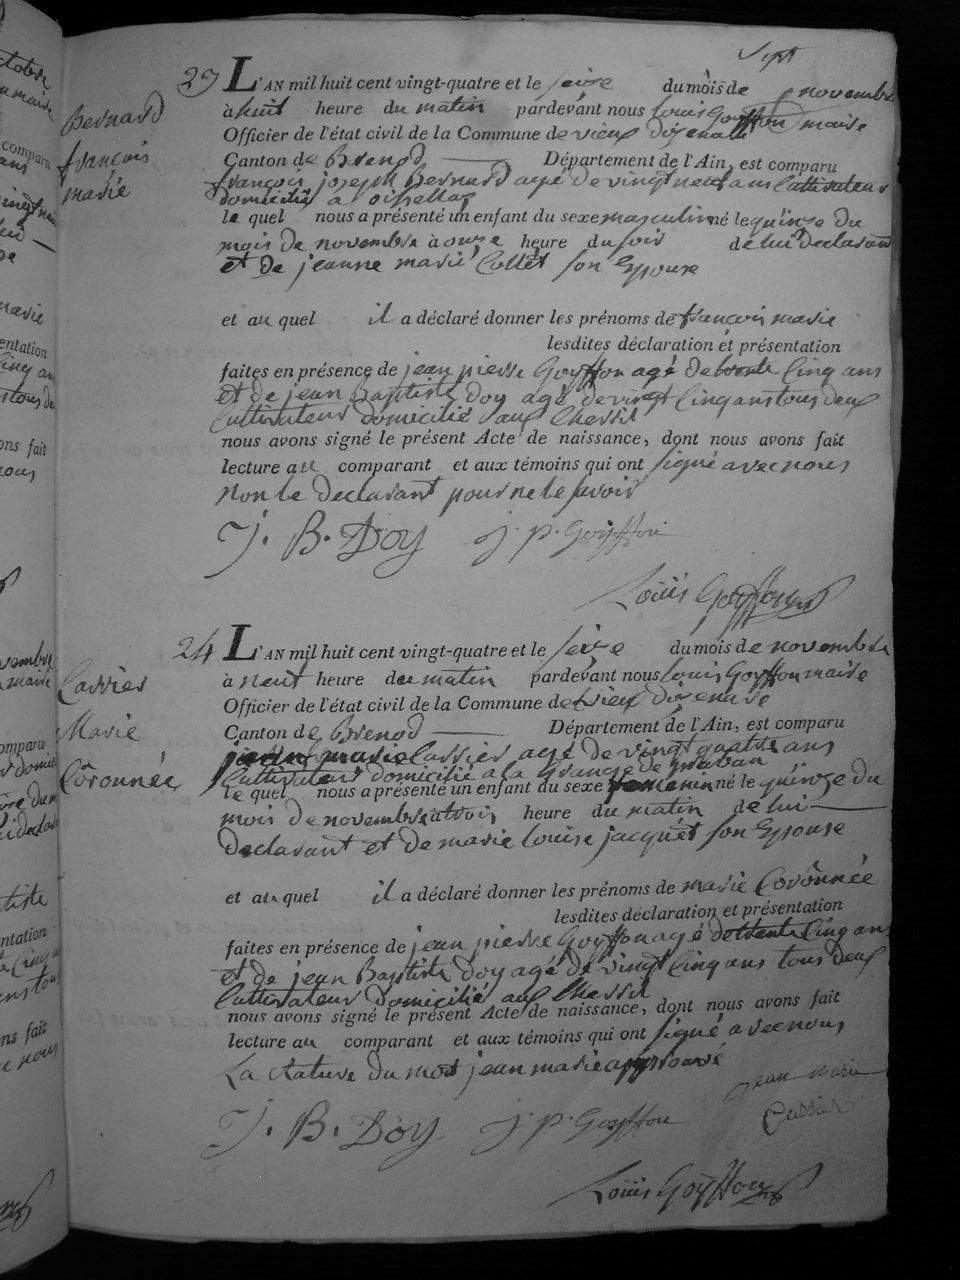 Sept
23 L'AN mil huit cent vingt-quatre et le seize du mois de novembre
à huit heure du matin pardevant nous Louis Goyffon maire
Officier de l'état civil de la Commune de vieux
Canton de Brenod Département de l'Ain, est comparu
françois joseph Bernard agé de vingt neuf ans Cultivateur
domicilié a oissellaz
le quel nous a présenté un enfant du sexe masculin né le quinze du
mois de novembre à onze heure du soir de lui declarant
et de jeanne marie Collet son Epouse
et au quel il a déclaré donner les prénoms de françois marie
lesdites déclaration et présentation
faites en présence de jean pierre Goyffon agé de trente Cinq ans
et de jean Baptiste Doy agé de vingt Cinq ans tous deux
Cultivateur domicilié aux Chessil
nous avons signé le présent Acte de naissance, dont nous avons fait
lecture au comparant et aux témoins qui ont signé avec nous
Non le declarant pour ne le savoir
J. B. Doy j. p. Goyffon
Louis Goyffon
Bernard
françois
marie
24 L'AN mil huit cent vingt-quatre et le seize du mois de novembre
à neuf heure du matin pardevant nous Louis Goyffon maire
Officier de l'état civil de la Commune de vieux
Canton de Brenod Département de l'Ain, est comparu
jean marie Carrier agé de vingt quatre ans
Cultivateur domicilié a la Grange de
le quel nous a présenté un enfant du sexe femeninn né le quinze du
mois de novembre à trois heure du matin de lui
declarant et de marie Louise jacquet son Epouse
et au quel il a déclaré donner les prénoms de marie Corônnée
lesdites déclaration et présentation
faites en présence de jean pierre Goyffon agé de trente Cinq ans
et de jean Baptiste Doy agé de vingt Cinq ans tous deux
Cultivateur Domicilié aux Chessil
nous avons signé le présent Acte de naissance, dont nous avons fait
lecture au comparant et aux témoins qui ont signé avec nous
La rature du mot jean marie approuvé
jean marie
Carrier
J. B. Doy j. p. Goyffon
Louis Goyffon
Carrier
Marie
Corônnée